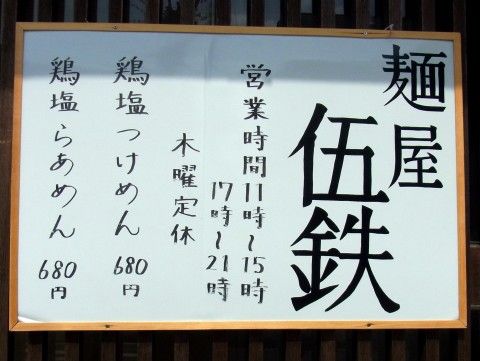 麺屋
伍鉄
営業時間11時~15時
17時~21時
木曜定休
鶏塩つけめん 680円
鶏塩らあめん 680円